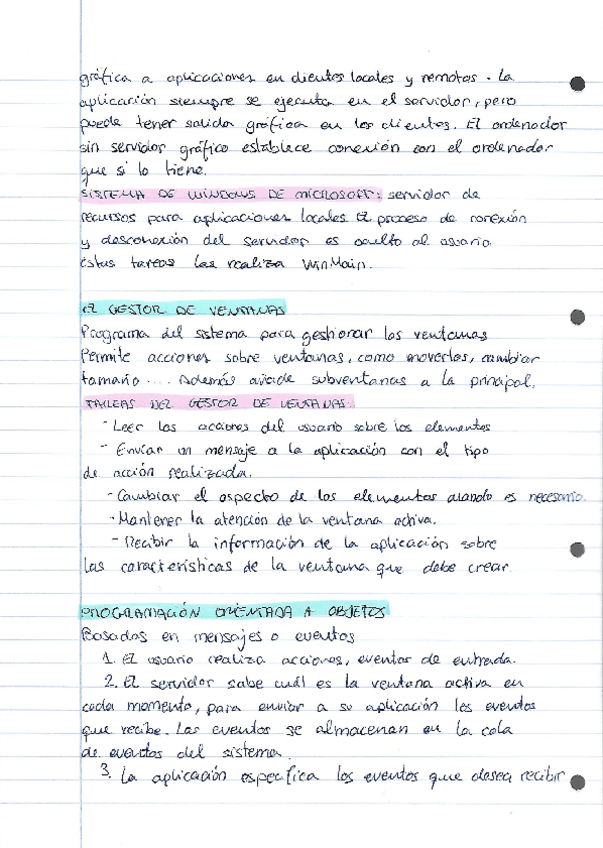 gráfica a aplicaciones en clientes locales y remotas. La
aplicación siempre se ejecuta en el servidor, pero
puede tener salida gráfica en los clientes. El ordenador
sin servidor gráfico establece conexión con el ordenador
que si lo tiene.
SISTEMA DE WINDOWS DE MICROSOFT: servidor de
recursos para aplicaciones locales. El proceso de conexión
y desconexión del servidor es oculto al usuario.
Estas tareas las realiza WinMain.
EL GESTOR DE VENTANAS
Programa del sistema para gestionar las ventanas
Permite acciones sobre ventanas, como moverlas, cambiar
tamaño .... Además añade subventanas a la principal.
TAREAS DEL GESTOR DE VENTANAS:
- Leer las acciones del usuario sobre los elementos
- Enviar un mensaje a la aplicación con el tipo
de acción realizada.
- Cambiar el aspecto de los elementos cuando es necesario.
- Mantener la atención de la ventana activa.
- Recibir la información de la aplicación sobre
las características de la ventana que debe crear.
PROGRAMACIÓN ORIENTADA A OBJETOS
Basados en mensajes o eventos
1. El usuario realiza acciones, eventos de entrada.
2. El servidor sabe cuál es la ventana activa en
cada momento, para enviar a su aplicación los eventos
que recibe. Los eventos se almacenan en la cola
de eventos del sistema.
3. La aplicación especifica los eventos que desea recibir